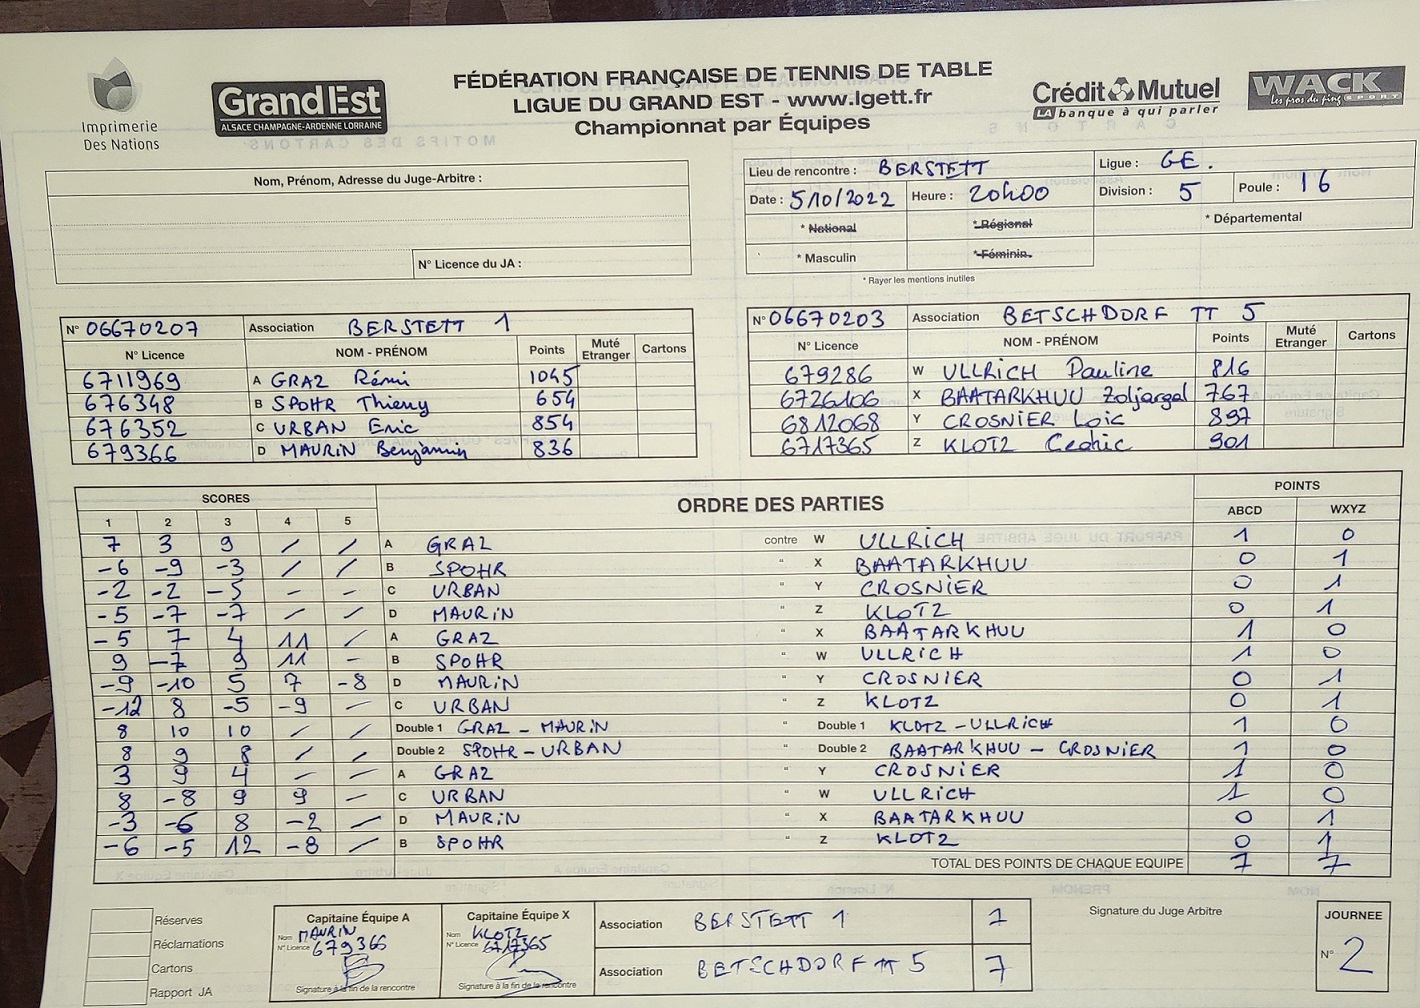 Imprimerie
Des Nations
Grand Est
ALSACE CHAMPAGNE-ARDENNE LORRAINE
FÉDÉRATION FRANÇAISE DE TENNIS DE TABLE
LIGUE DU GRAND EST - www.lgett.fr
Championnat par Équipes
Crédit Mutuel
LA banque à qui parler
WACK
les pros du ping SPORT
Nom, Prénom, Adresse du Juge-Arbitre :
N° Licence du JA :
Lieu de rencontre : BERSTETT Ligue : GE.
Date : 5/10/2022 Heure : 20h00 Division : 5 Poule : 16
* National * Régional * Départemental
* Masculin * Féminin.
* Rayer les mentions inutiles
N° 06670207 Association BERSTETT 1
N° Licence NOM - PRÉNOM Points Muté Etranger Cartons
6711969 A GRAZ Rémi 1045
676348 B SPOHR Thierry 654
676352 C URBAN Eric 854
679366 D MAURIN Benjamin 836
N° 06670203 Association BETSCHDORF TT 5
N° Licence NOM - PRÉNOM Points Muté Etranger Cartons
679286 W ULLRICH Pauline 816
6726106 X BAATARKHUU Zoljargal 767
6812068 Y CROSNIER Loic 897
6717365 Z KLOTZ Cedric 901
SCORES ORDRE DES PARTIES POINTS
1 2 3 4 5 ABCD WXYZ
7 3 9 / / A GRAZ contre W ULLRICH 1 0
-6 -9 -3 / / B SPOHR " X BAATARKHUU 0 1
-2 -2 -5 - - C URBAN " Y CROSNIER 0 1
-5 -7 -7 / / D MAURIN " Z KLOTZ 0 1
-5 7 4 11 / A GRAZ " X BAATARKHUU 1 0
9 -7 9 11 - B SPOHR " W ULLRICH 1 0
-9 -10 5 7 -8 D MAURIN " Y CROSNIER 0 1
-12 8 -5 -9 - C URBAN " Z KLOTZ 0 1
8 10 10 / / Double 1 GRAZ - MAURIN " Double 1 KLOTZ - ULLRICH 1 0
8 9 8 / / Double 2 SPOHR - URBAN " Double 2 BAATARKHUU - CROSNIER 1 0
3 9 4 - - A GRAZ " Y CROSNIER 1 0
8 -8 9 9 - C URBAN " W ULLRICH 1 0
-3 -6 8 -2 / D MAURIN " X BAATARKHUU 0 1
-6 -5 12 -8 / B SPOHR " Z KLOTZ 0 1
TOTAL DES POINTS DE CHAQUE EQUIPE 7 7
Réserves
Réclamations
Cartons
Rapport JA
Capitaine Équipe A
Nom MAURIN
N° Licence 679366
Signature à la fin de la rencontre
Capitaine Équipe X
Nom KLOTZ
N° Licence 6717365
Signature à la fin de la rencontre
Association BERSTETT 1 7
Association BETSCHDORF TT 5 7
Signature du Juge Arbitre
JOURNEE
N° 2